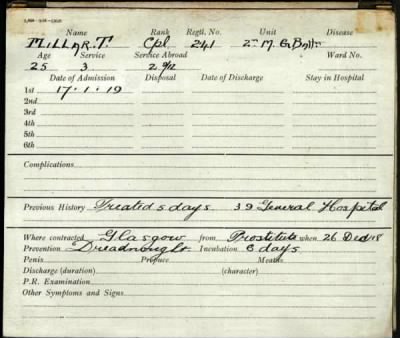 Name Rank Regtl. No. Unit Disease
MILLAR. T. Cpl. 241 2nd M. G. Battn
Age Service Service Abroad Ward No.
25 3 2 9/12
Date of Admission Disposal Date of Discharge Stay in Hospital
1st 17.1.19
2nd
3rd
4th
5th
6th
Complications
Previous History Treated 5 days 39 General Hospital
Where contracted Glasgow from Prostitute when 26 Dec 18
Prevention Dreadnought Incubation 6 days
Penis Prepuce Meatus
Discharge (duration) (character)
P.R. Examination
Other Symptoms and Signs